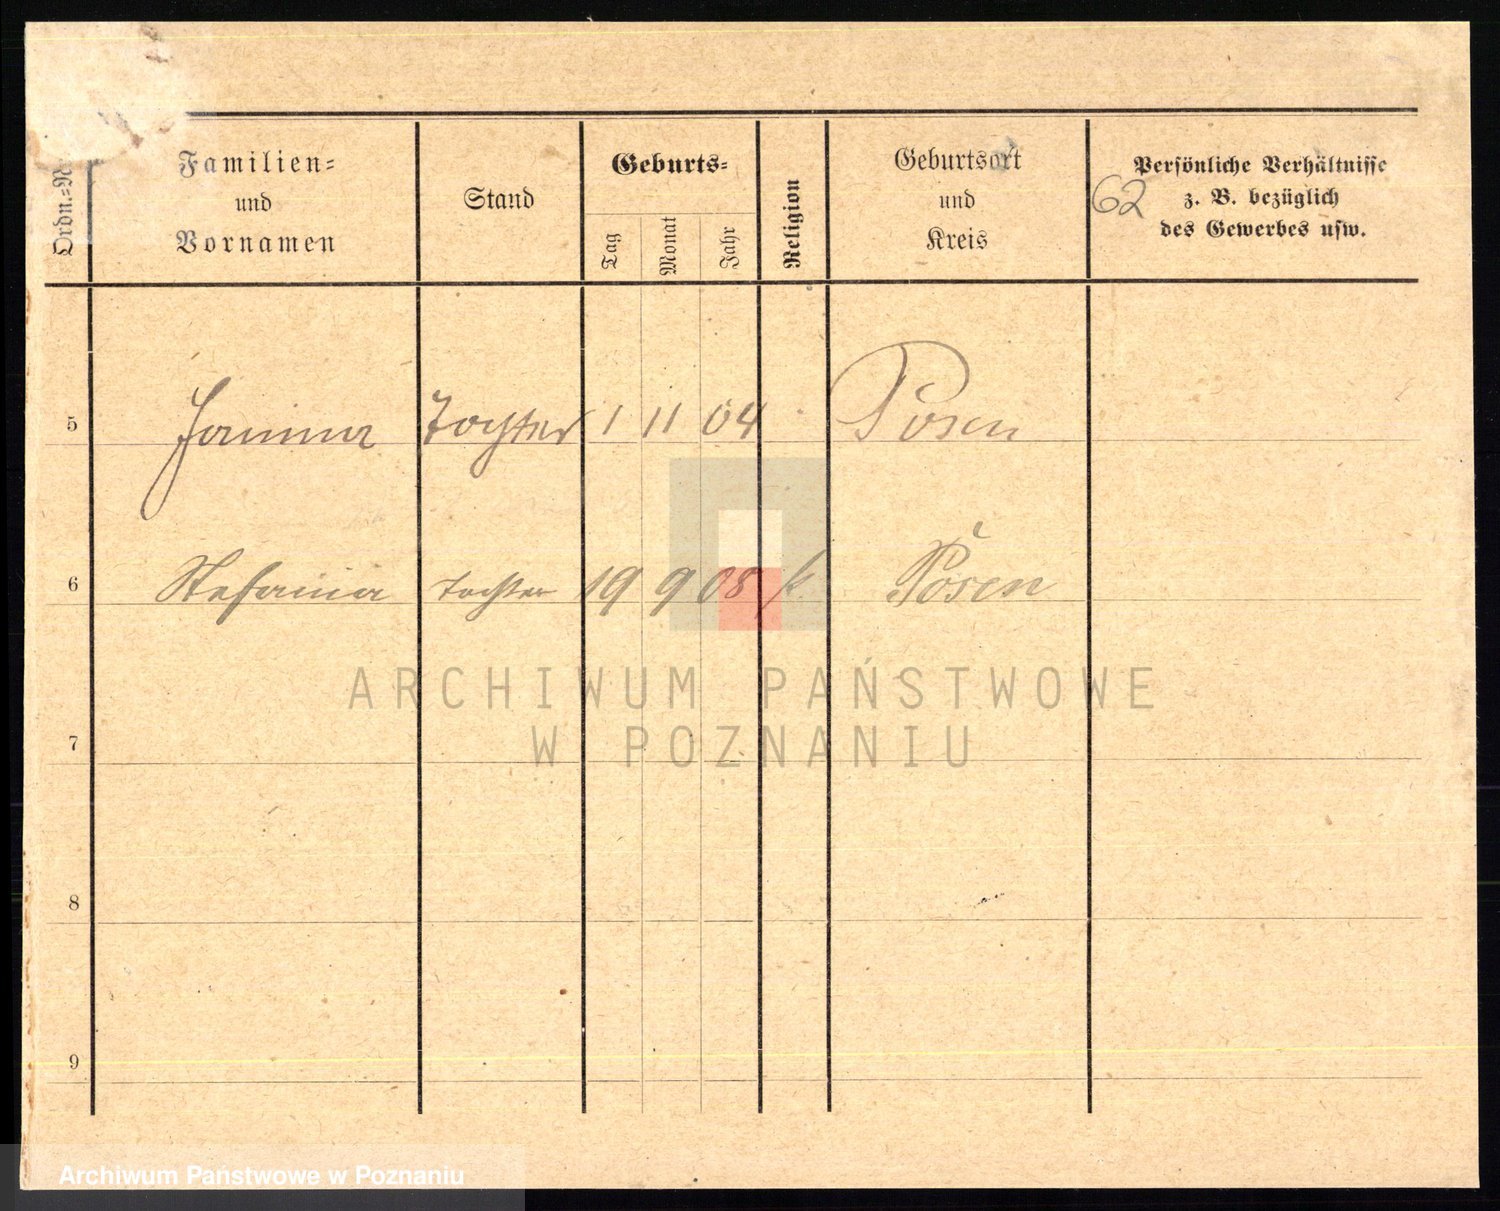 Ordn.=Nr.
Familien=
und
Vornamen
Stand
Geburts=
Tag
Monat
Jahr
Religion
Geburtsort
und
Kreis
Persönliche Verhältnisse
z. B. bezüglich
des Gewerbes usw.
62
5 Janina Tochter 1 11 04 Posen
6 Stefania Tochter 19 9 08 k. Posen
ARCHIWUM PAŃSTWOWE
W POZNANIU
7
8
9
Archiwum Państwowe w Poznaniu